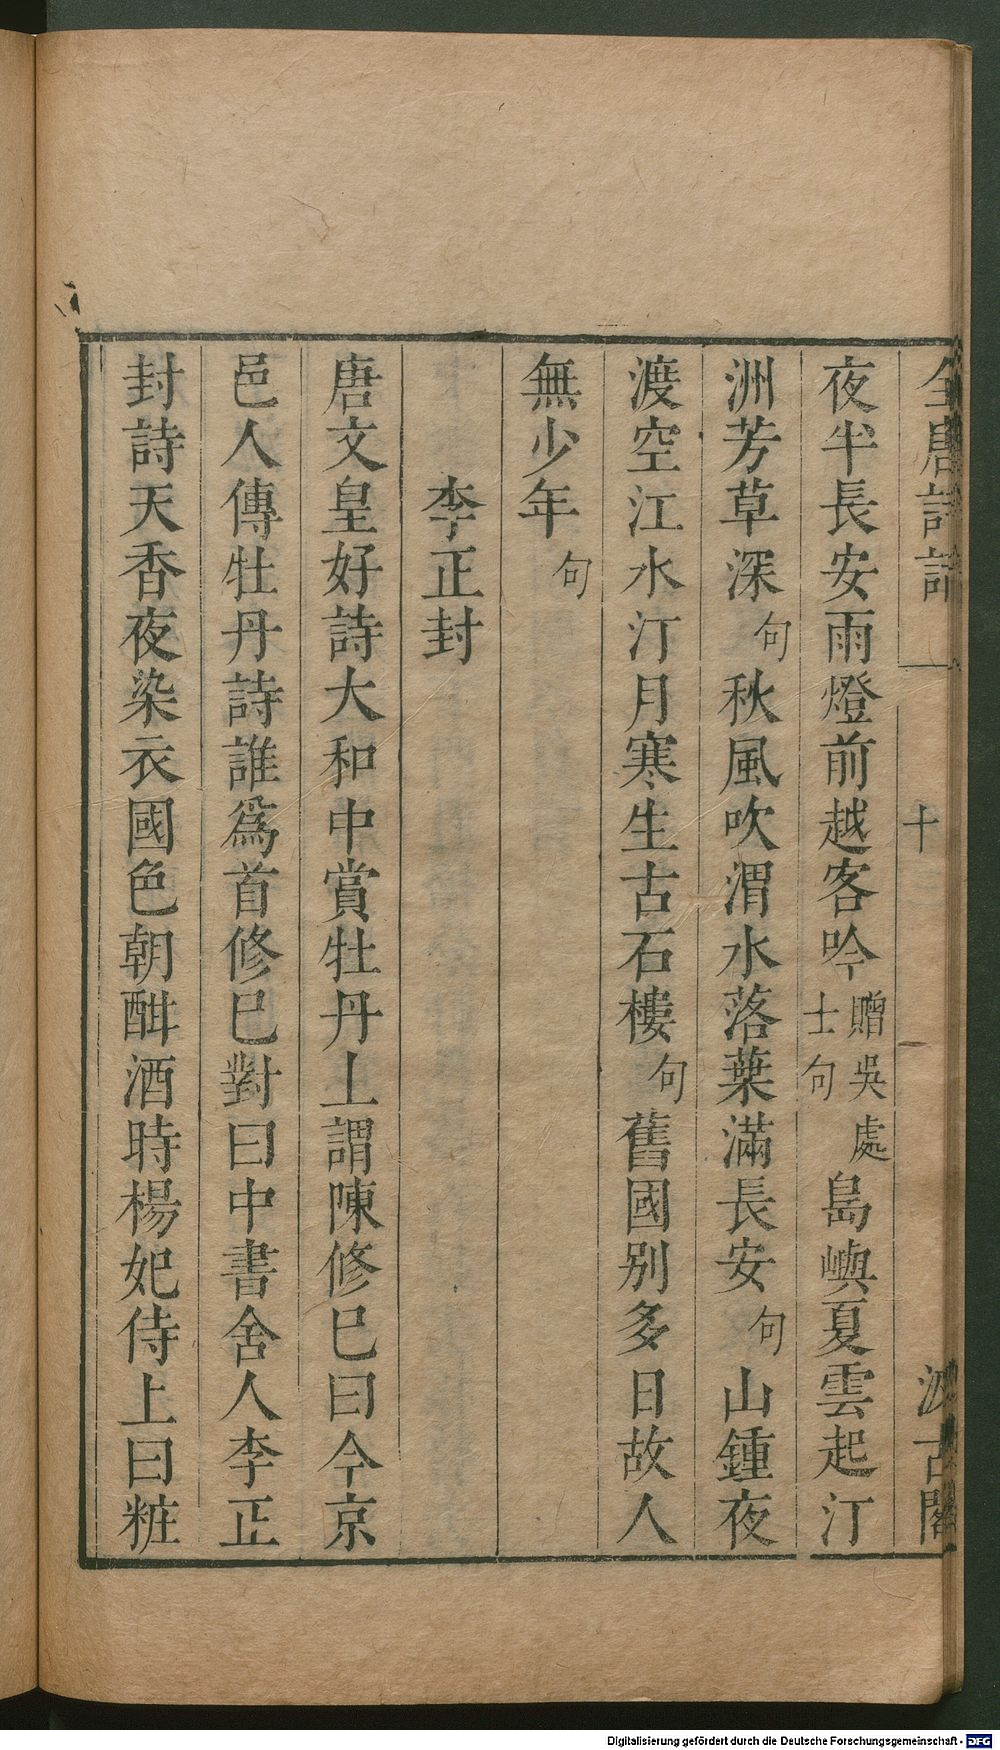 全唐詩話
十
汲古閣
夜半長安雨燈前越客吟贈吳處士句島嶼夏雲起汀
洲芳草深句秋風吹渭水落葉滿長安句山鍾夜
渡空江水汀月寒生古石樓句舊國别多日故人
無少年句
李正封
唐文皇好詩大和中賞牡丹上謂陳修巳曰今京
邑人傳牡丹詩誰爲首修巳對曰中書舍人李正
封詩天香夜染衣國色朝酣酒時楊妃侍上曰粧
Digitalisierung gefördert durch die Deutsche Forschungsgemeinschaft - DFG